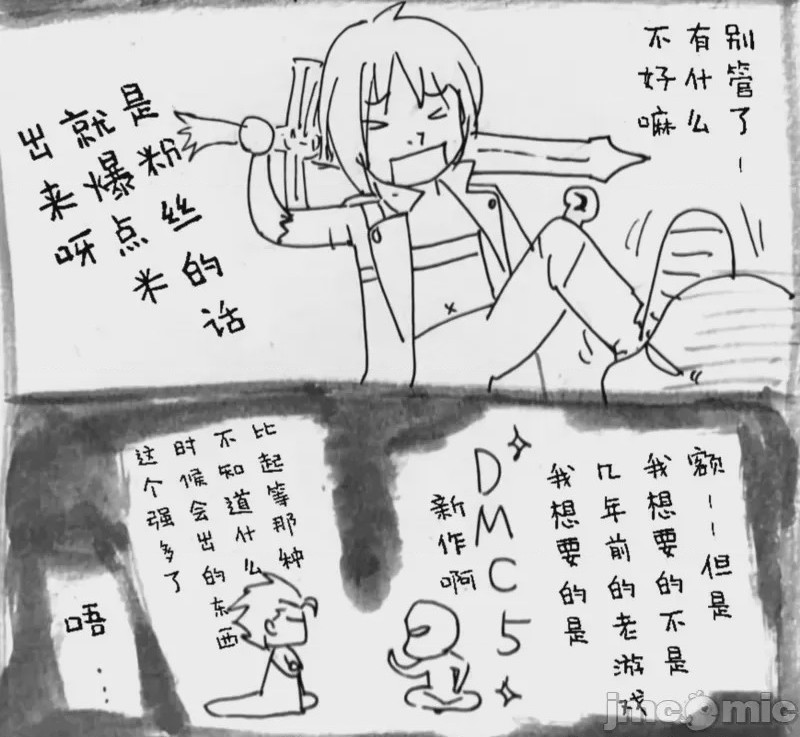 别管了–
有什么
不好嘛
是粉丝的话
就爆点米
出来呀
额––但是
我想要的不是
几年前的老游戏
我想要的是
DMC5
新作啊
比起等那种
不知道什么
时候会出的东西
这个强多了
唔…
jmcomic